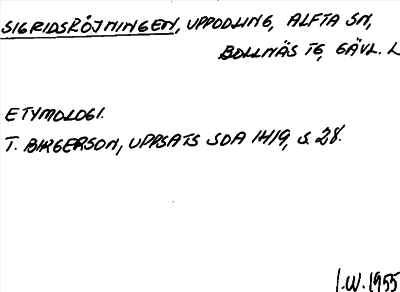 SIGRIDSRÖJNINGEN, UPPODLING, ALFTA SN,
BOLLNÄS TG, GÄVL. L
ETYMOLOGI.
T. BIRGERSON, UPPSATS SOA 1419, S. 28.
I.W. 1955